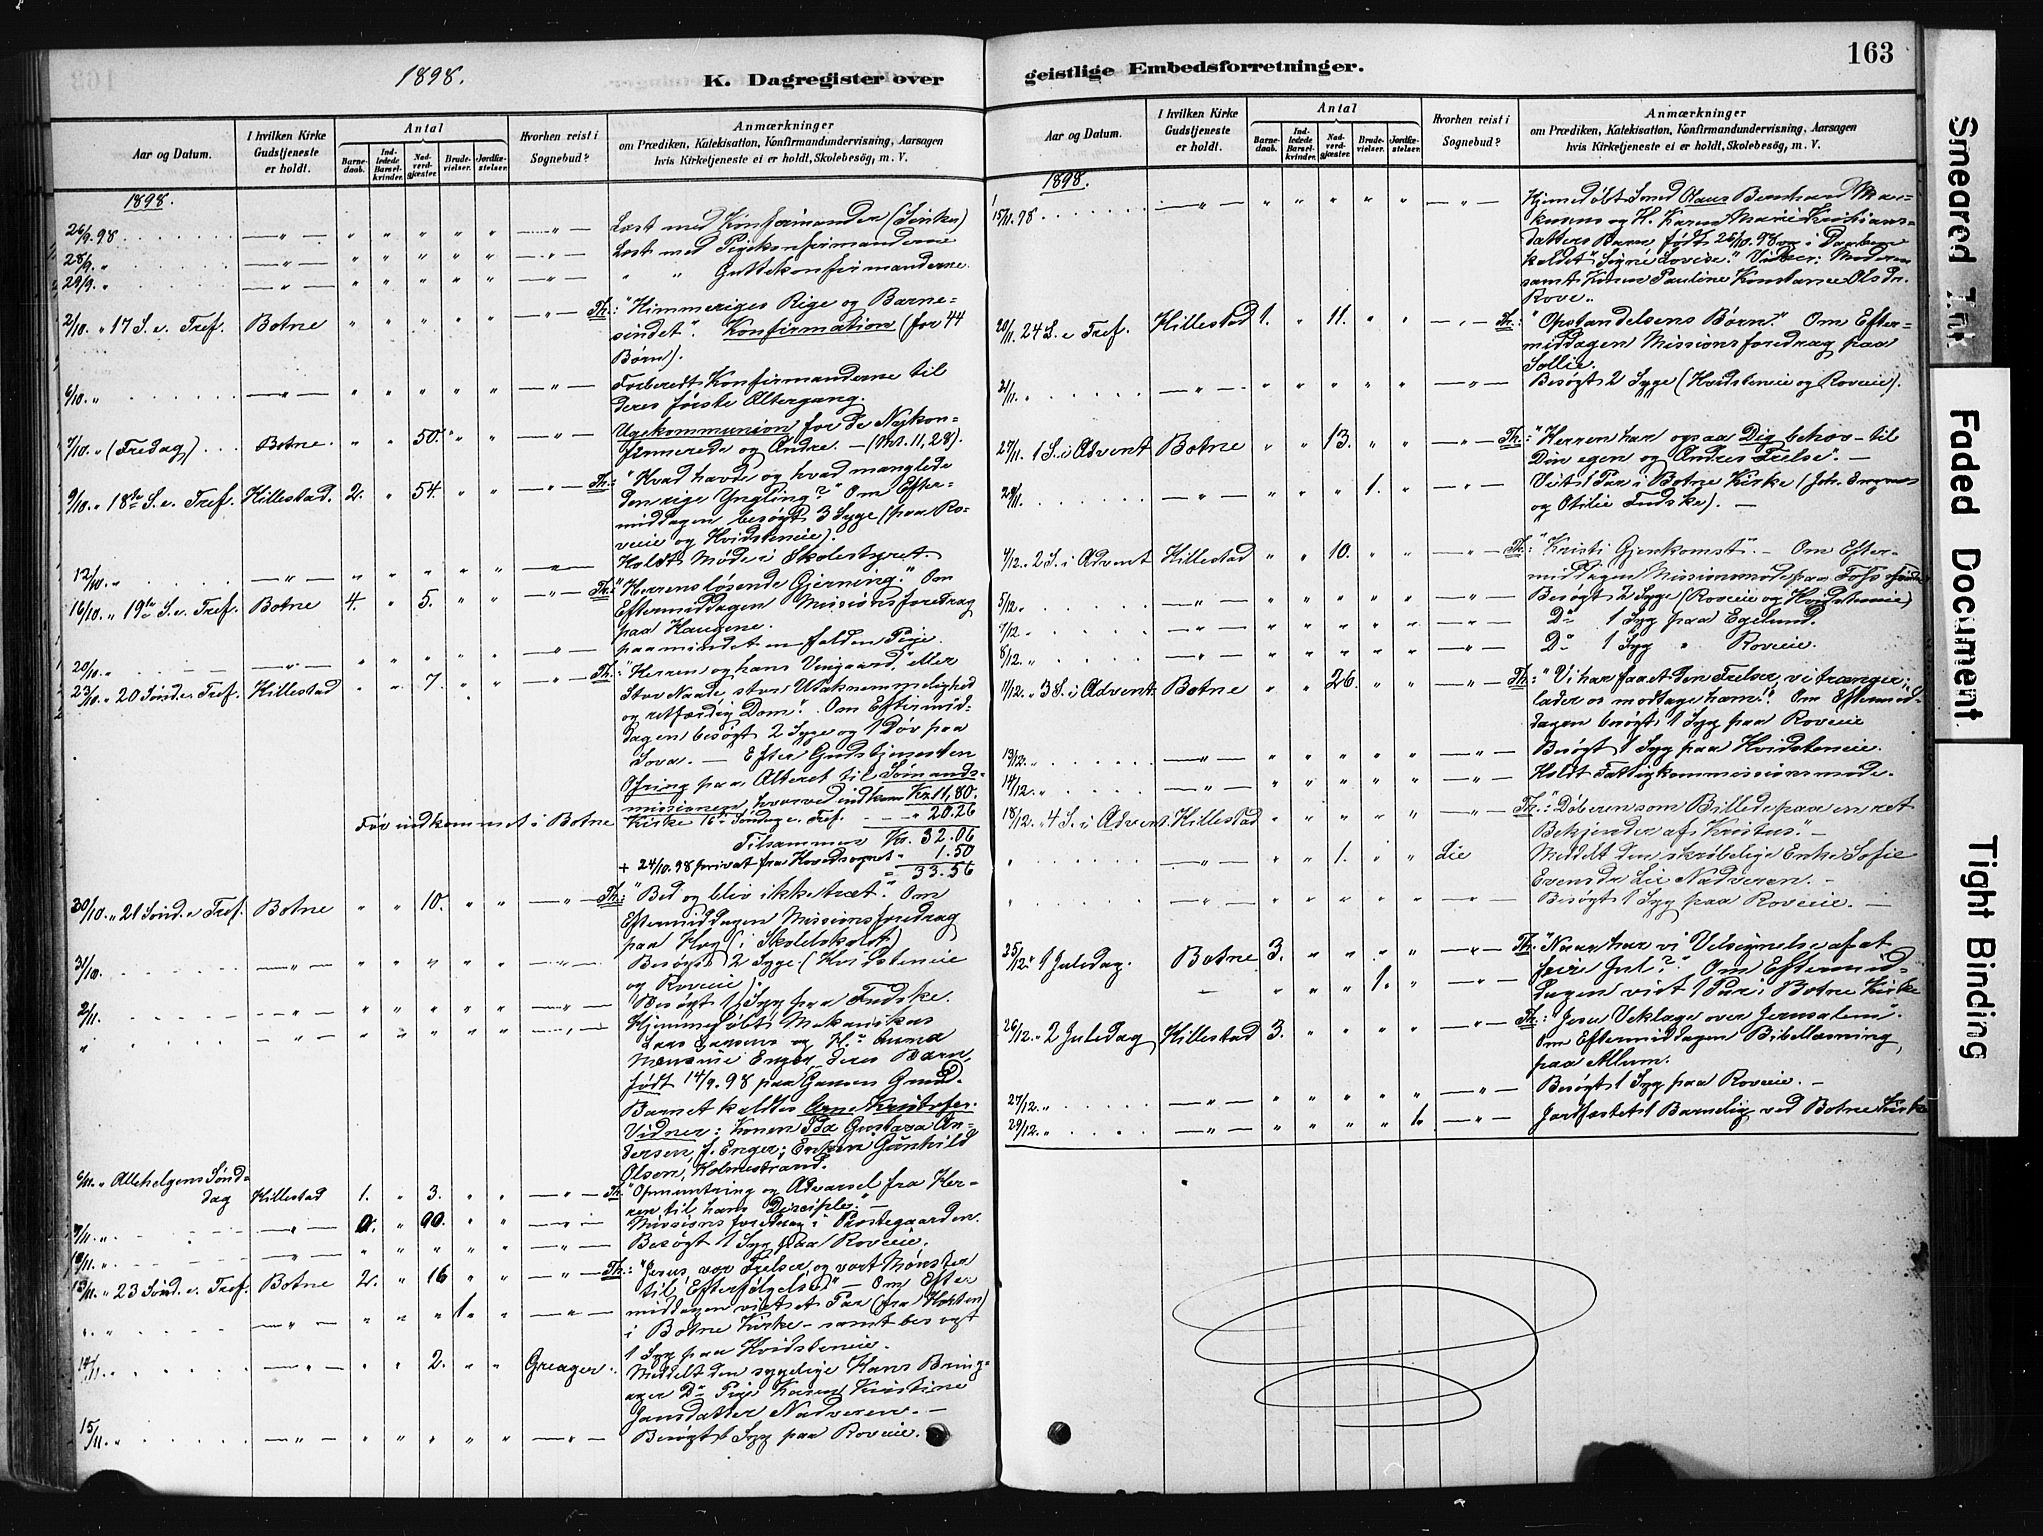 1898.
K. Dagregister over
Aar og Datum.
I hvilken Kirke Gudstjeneste er holdt.
Antal
Barne-daab.
Ind-ledede Barsel-kvinder.
Nad-verd-gjæster.
Brude-vielser.
Jordfæ-stelser.
Hvorhen reist i Sognebud?
Anmærkninger
om Prædiken, Katekisation, Konfirmandundervisning, Aarsagen
hvis Kirketjeneste ei er holdt, Skolebesøg, m. V.
1898.
26/9. 98 — " — " " " " " — " — Læst med Konfirmander
28/9. " — " — " " " " " — " — Læst med Pigekonfirmanderne
29/9. " — " — " " " " " — " — " " Guttekonfirmanderne.
2/10. " 17 S. e. Tref. Botne " " " " " — " — Th.: "Himmeriges Rige og Barne-
sindet". Konfirmation (for 44
Børn).
6/10. " — " — " " " " " — " — Forberedt Konfirmanderne til
deres første Altergang.
7/10. " (Fredag) Botne. " " 50. " " — " — Ugekommunion for de Nykon-
firmerede og Andre. — (Mt. 11,28).
9/10. " 18de S. e. Tref. Hillestad. 2. " 54. " " — " — Th.: "Hvad havde og hvad manglede
den rige Yngling?" Om Efter-
middagen besøgt 3 Syge (paa Ro-
veie og Hvidsteneie).
12/10. " — " — " " " " " — " — Holdt Møde i Skolestyret.
16/10. " 19de S. e. Tref. Botne 4. " 5. " " — " — Th.: "Herrens løsende Gjerning." Om
Eftermiddagen Missionsforedrag
paa Haugene.
20/10. " — " — " " " " " — " — paamindet en falden Pige.
23/10. " 20 Sønd. e. Tref. Hillestad " " 7. " " — " — Th.: "Herren og hans Vingaard." Eller
Stor Naade, stor Utaknemmelighed
og retfærdig Dom". Om Eftermid-
dagen besøgt 2 Syge og 1 Døv paa
— Efter Gudstjenesten
Ofring paa Alteret til Sømands-
missionen, hvorved indkom Kr. 11,80.
Før indkommet i Botne Kirke 16de Søndag e. Tref. — " 20.26
Tilsammen Kr. 32.06
+ 24/10. 98 privat fra Hovedsognet " 1.50
= 33.56
30/10. " 21 Sønd. e. Tref. Botne " " 10. " " — " — Th.: "Bed og bliv ikke træt" Om
Eftermiddagen Missionsforedrag
paa
31/10. — " — " " " " " — " — Besøgt 2 Syge (Hvidsteneie
og Roveie)
2/11. — " — " " " " " — " — Besøgt 1 Syg paa Fudske.
" — " — " " " " " — " — Hjemmedøbt Mekanikus
Lars Larsens og H. Anna
Enger, deres Barn,
født 14/9. 98 paa Grund.
Barnet kaldtes Arne Kristofer.
Vidner: Konen Ida Gustava An-
dersen, f. Enger; Enken Gunhild
Olsen, Holmestrand.
6/11. " Allehelgens Sønd-
dag Hillestad 1. " 3. " " — " — Th. "Opmuntring og Advarsel fra Her-
ren til hans Disciple." —
Missionsforedrag i Prestegaarden.
10/11. " — " — " " " " " — " — Besøgt 1 Syg paa Roveie.
13/11. " 23 Sønd. e. Tref. Botne 2. " 16 " " — " — Th.: "Jesus vor Frelser og vort Mønster
til Efterfølgelse" — Om Efter
" " — " — " " " 1. " — " — middagen viet et Par (fra Horten)
i Botne Kirke — samt besøgt
1 Syg paa Hvidsteneie.
14/11. " — " — " " 2. " " Greager. Meddelt den sygelige Hans Bring-
ager Do Pige Karen Kristine
Jansdatter Nadveren. —
15/11. " — " — " " " " " — " — Besøgt 1 Syg paa Roveie.
geistlige Embedsforretninger.
163
Aar og Datum.
I hvilken Kirke Gudstjeneste er holdt.
Antal
Barne-daab.
Ind-ledede Barsel-kvinder.
Nad-verd-gjæster.
Brude-vielser.
Jordfæ-stelser.
Hvorhen reist i Sognebud?
Anmærkninger
om Prædiken, Katekisation, Konfirmandundervisning, Aarsagen
hvis Kirketjeneste ei er holdt, Skolebesøg, m. V.
1898.
15/11. 98 — " — " " " " " — " — Hjemmedøbt Smed Olaus Bernhard Mar-
kusens og H. Karen Marie Kristians-
datters Barn født 26/10. 98 i Daaben
kaldet "Signe Lovise." Vidner: Moderen
samt Konen Pauline Konstanse Olsdr.
Rove.
20/11. 24 S. e. Tref. Hillestad 1. " 11. " " — " — Th.: "Opstandelsens Børn." Om Efter-
middagen Missionsforedrag paa
Sollie.
21/11. " — " — " " " " " — " — Besøgt 2 Syge (Hvidsteneie og Roveie).
27/11. 1 S. i Advent Botne " " 13. " " — " — Th.: "Herren har ogsaa Dig behov — til
Din egen og Andres Frelse". —
28/11. — " — " " " 1. " — " — Viet 1 Par i Botne Kirke (Joh.
og Otilie Fudske). —
4/12. " 2 S. i Advent Hillestad " " 10. " " — " — Th.: "Kristi Gjenkomst". — Om Efter-
middagen Missionsmøde paa
5/12. " — " — " " " " " — " — Besøgt 2 Syge (Roveie og Hvidsteneie)
7/12. " — " — " " " " " — " — Do 1 Syg paa Egelund.
8/12. " — " — " " " " " — " — Do 1 Syg " Roveie.
11/12. " 3 S. i Advent. Botne " " 26. " " — " — Th.: "Vi har faaet den Frelser, vi trænger;
lader os modtage ham!" Om Eftermid-
dagen besøgt 1 Syg paa Roveie
13/12. " — " — " " " " " — " — Besøgt 1 Syg paa Hvidsteneie.
14/12. " — " — " " " " " — " — Holdt Fattigkommissionsmøde.
18/12. " 4 S. i Advent. Hillestad " " " " " — " — Th.: "Døberen som Billede paa en ret
Bekjender af Kristus." —
" — " — " " 1. " " Lie Meddelt den skrøbelige Enke Sofie
Lie Nadveren. —
" — " — " " " " " — " — Besøgt 1 Syg paa Roveie. —
25/12. " 1 Juledag. Botne 3. " " " " — " — Th.: "Naar har vi Velsignelse af at
feire Jul?" Om Eftermid-
" " " 1. " dagen viet 1 Par i Botne Kirke
26/12. " 2 Juledag Hillestad 3. " " " " — " — Th.: "Jesu Veklage over Jerusalem".
Om Eftermiddagen Bibellæsning,
paa
27/12. " — " — " " " " " — " — Besøgt 1 Syg paa Roveie. —
29/12. " — " — " " " " 1. — " — Jordfæstet 1 Barnelig ved Botne Kirke
Smeared Ink
Faded Document
Tight Binding